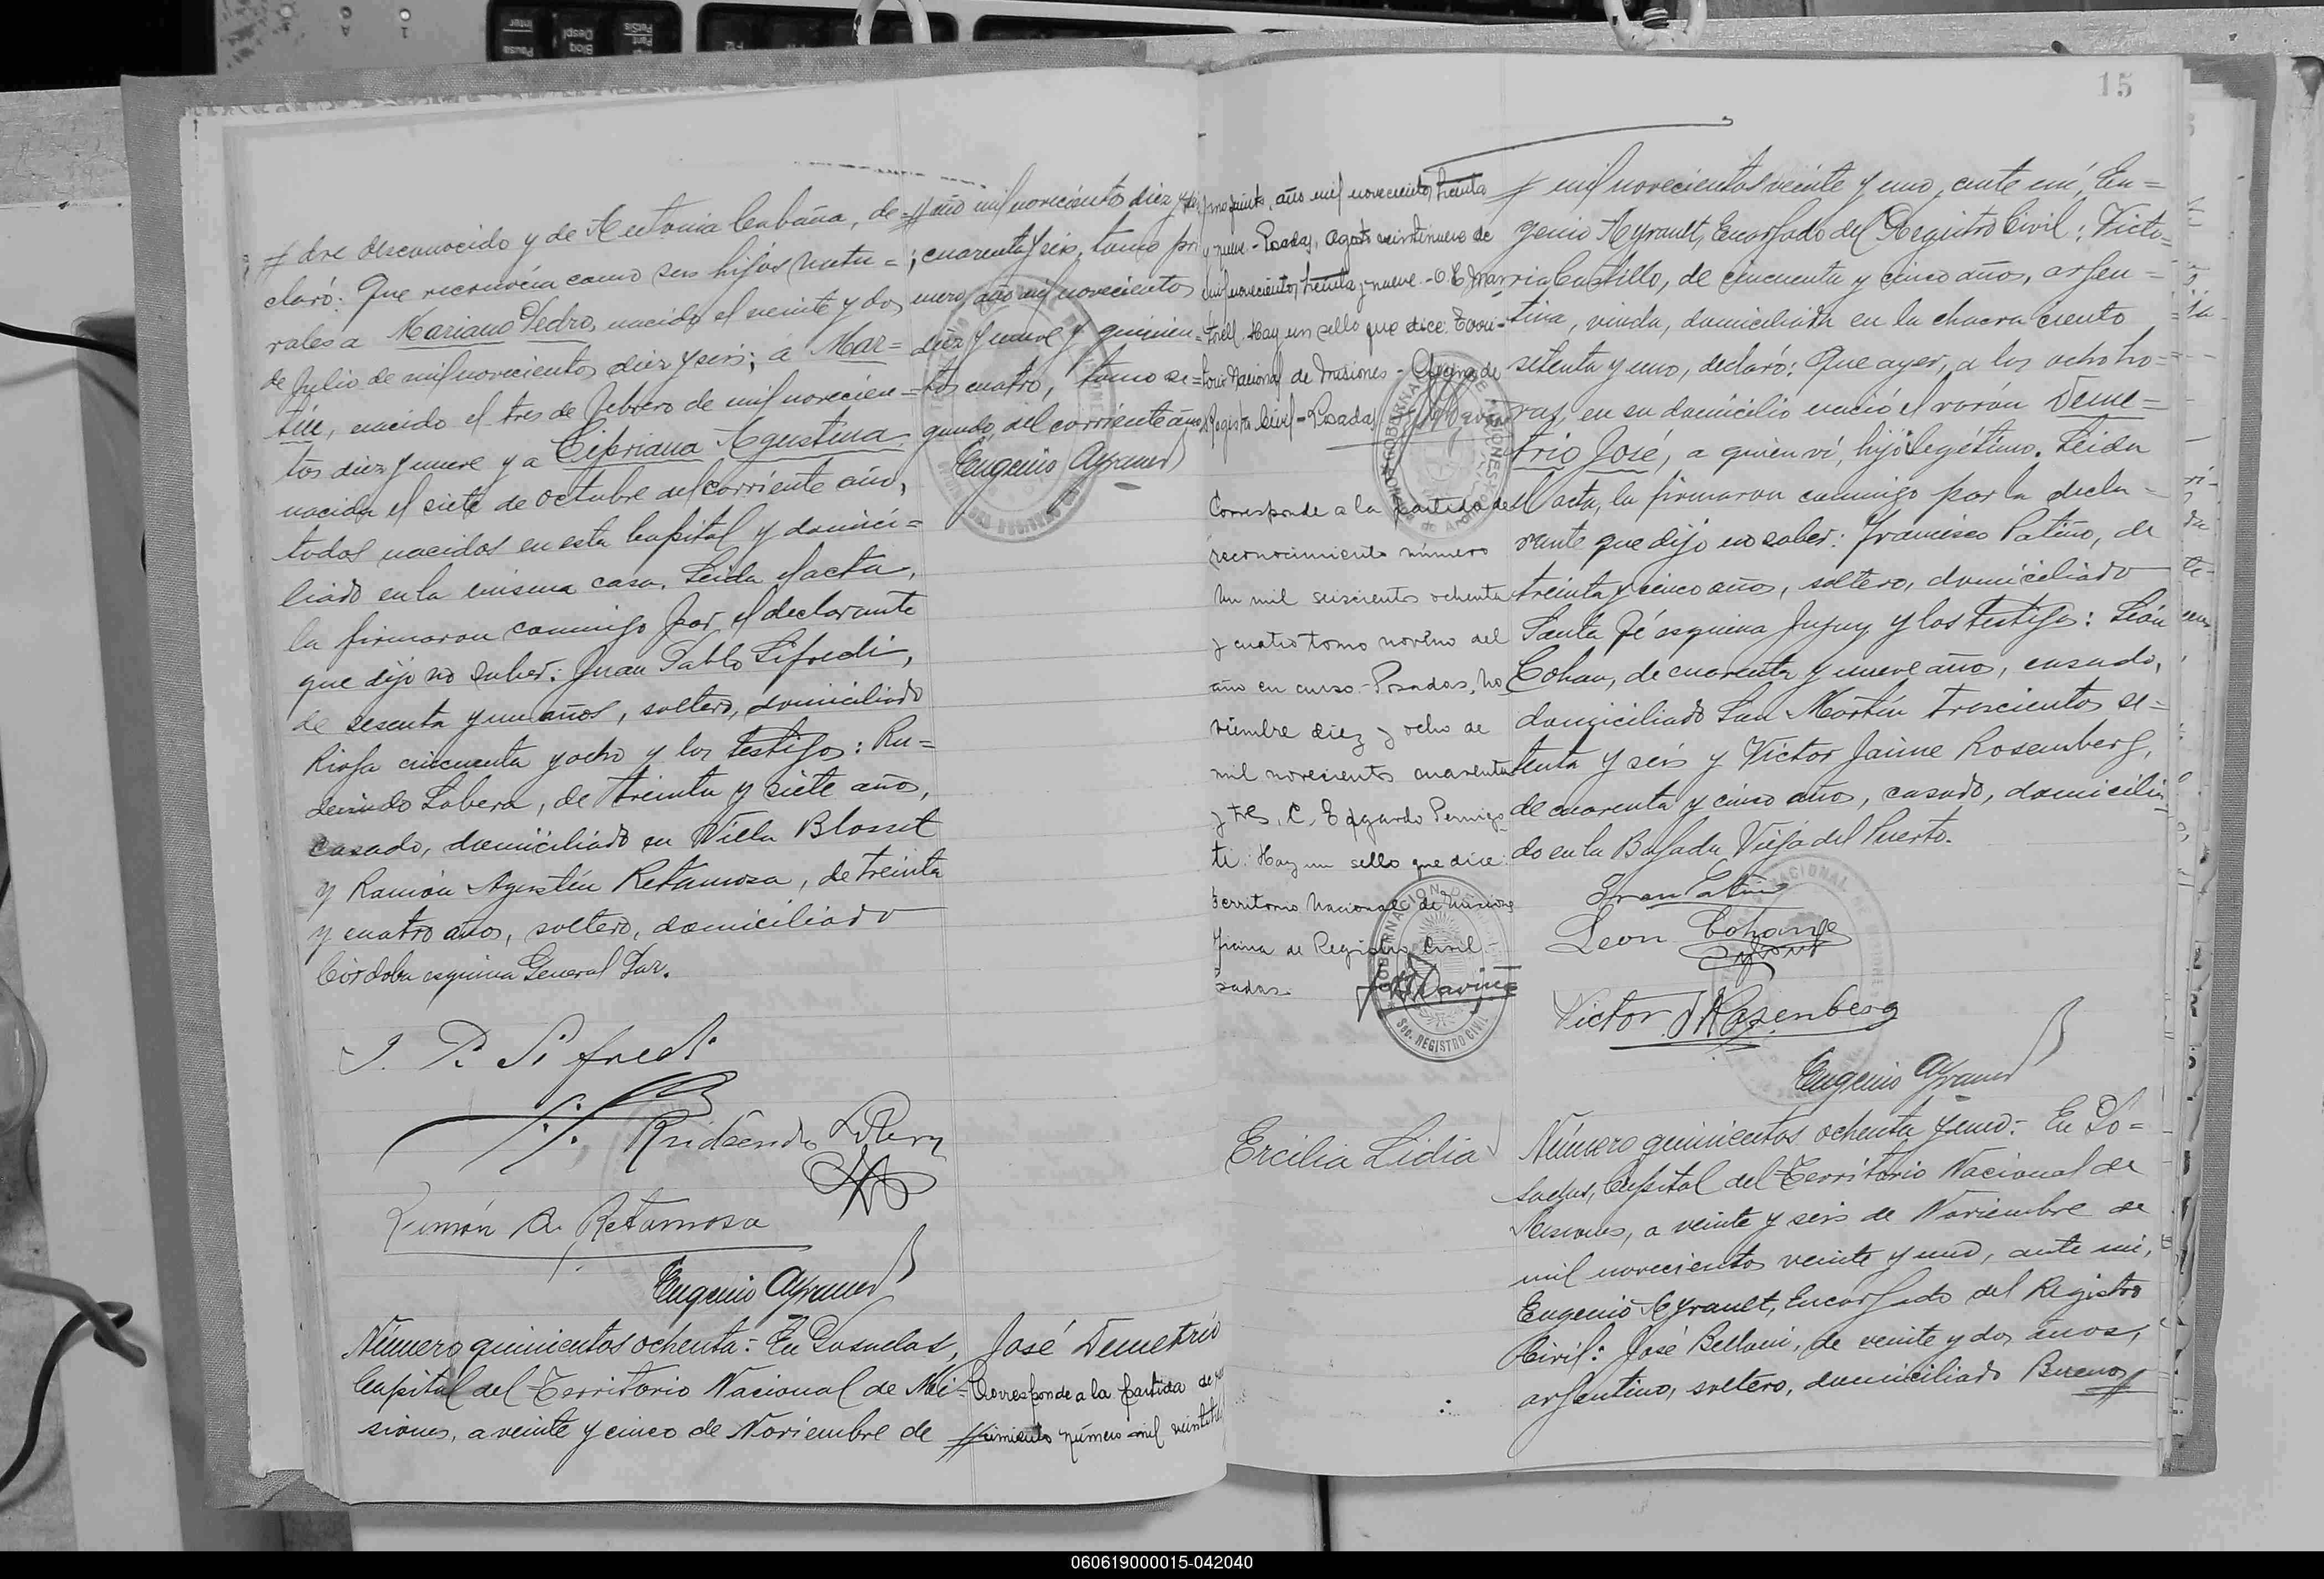 15
dre desconocido y de Antonia Cabaña, de=
claró: Que reconocía como sus hijos natu=
rales a Mariano Pedro, nacido el veinte y dos
de Julio de mil novecientos diez y seis; a Mar=
tín, nacido el tres de febrero de mil novecien=
tos diez y nueve y a Cipriana Agustina
nacida el siete de octubre del corriente año,
todos nacidos en esta Capital y domici=
liado en la misma casa. Leida el acta,
la firmaron conmigo por el declarante
que dijo no saber: Juan Pablo Sifredi,
de sesenta y un años, soltero, domiciliado
Rioja cincuenta y ocho y los testigos: Ru=
desindo Lobera, de treinta y siete años,
casado, domiciliado en Villa Blosset
y Ramón Agustín Retamosa, de treinta
y cuatro años, soltero, domiciliado
Córdoba esquina General Paz.
J. P. Sifredi
Rudesindo
Ramón A. Retamosa
Eugenio Ayrault
Número quinientos ochenta: En Posadas,
Capital del Territorio Nacional de Mi=
siones, a veinte y cinco de Noviembre de
año mil novecientos diez y
cuarenta y seis, tomo pri
mero, año mil novecientos
diez y nueve y quinien=
tos cuatro, tomo se=
gundo, del corriente año
Eugenio Ayrault
José Demetrio
Corresponde a la partida de
cimiento número mil
año mil novecientos treinta
y nueve.- Posadas, Agosto veintinueve de
mil novecientos treinta y nueve.-
Hay un sello que dice: Terri=
torio Nacional de Misiones -
Registro Civil = Posadas
Corresponde a la partida de
reconocimiento número
un mil seiscientos ochenta
y cuatro tomo noveno del
año en curso.- Posadas, No
viembre diez y ocho de
mil novecientos cuarenta
y tres. C. Edgardo
ti. Hay un sello que dice:
Territorio Nacional de Misiones
ficina de Registro Civil -
sadas.
Ercilia Lidia
mil novecientos veinte y uno, ante mí, Eu=
genio Ayrault, Encargado del Registro Civil: Victo=
ria Castillo, de cincuenta y cinco años, argen=
tina, viuda, domiciliada en la chacra ciento
setenta y uno, declaró: Que ayer, a las ocho ho=
ras, en su domicilio nació el varón Deme=
trio José, a quien ví, hijo legítimo. Leida
el acta, la firmaron conmigo por la decla=
rante que dijo no saber: Francisco Patiño, de
treinta y cinco años, soltero, domiciliado
Santa Fé esquina Jujuy y los testigos: León
Cohan, de cuarenta y nueve años, casado,
domiciliado San Martín trescientos se=
tenta y seis y Víctor Jaime Rosemberg,
de cuarenta y cinco años, casado, domicilia=
do en la Bajada Vieja del Puerto.
Fran Patiño
Leon Cohan
Victor J Rosenberg
Eugenio Ayrault
Número quinientos ochenta y uno: En Po=
sadas, Capital del Territorio Nacional de
Misiones, a veinte y seis de Noviembre de
mil novecientos veinte y uno, ante mí,
Eugenio Ayrault, Encargado del Registro
Civil: José Belloni, de veinte y dos años,
argentino, soltero, domiciliado Buenos
060619000015-042040